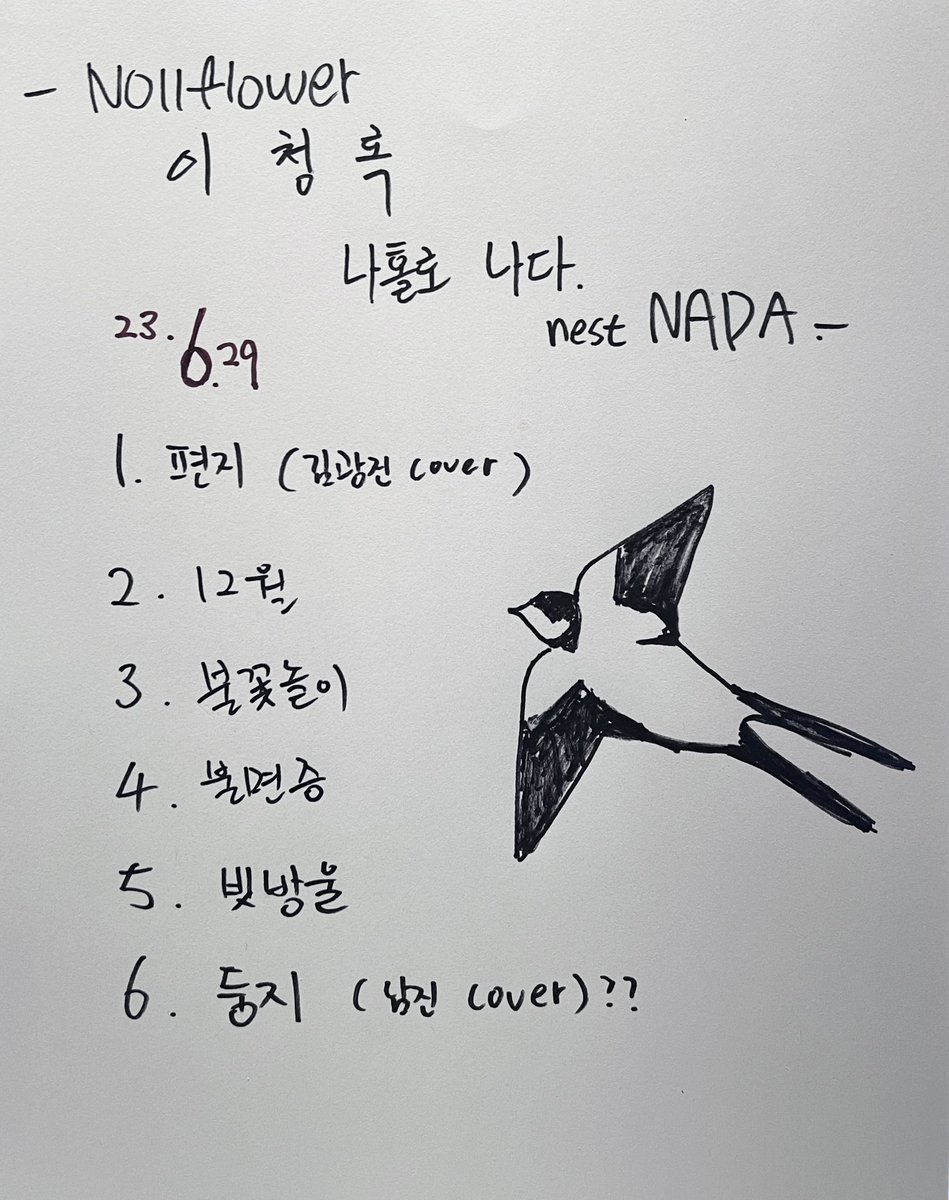 - Nollflower
이 청 록
나홀로 나다.
nest NADA -
23.6.29
1. 편지 (김광진 cover)
2. 12월
3. 불꽃놀이
4. 불면증
5. 빛방울
6. 둥지 (남진 cover)??